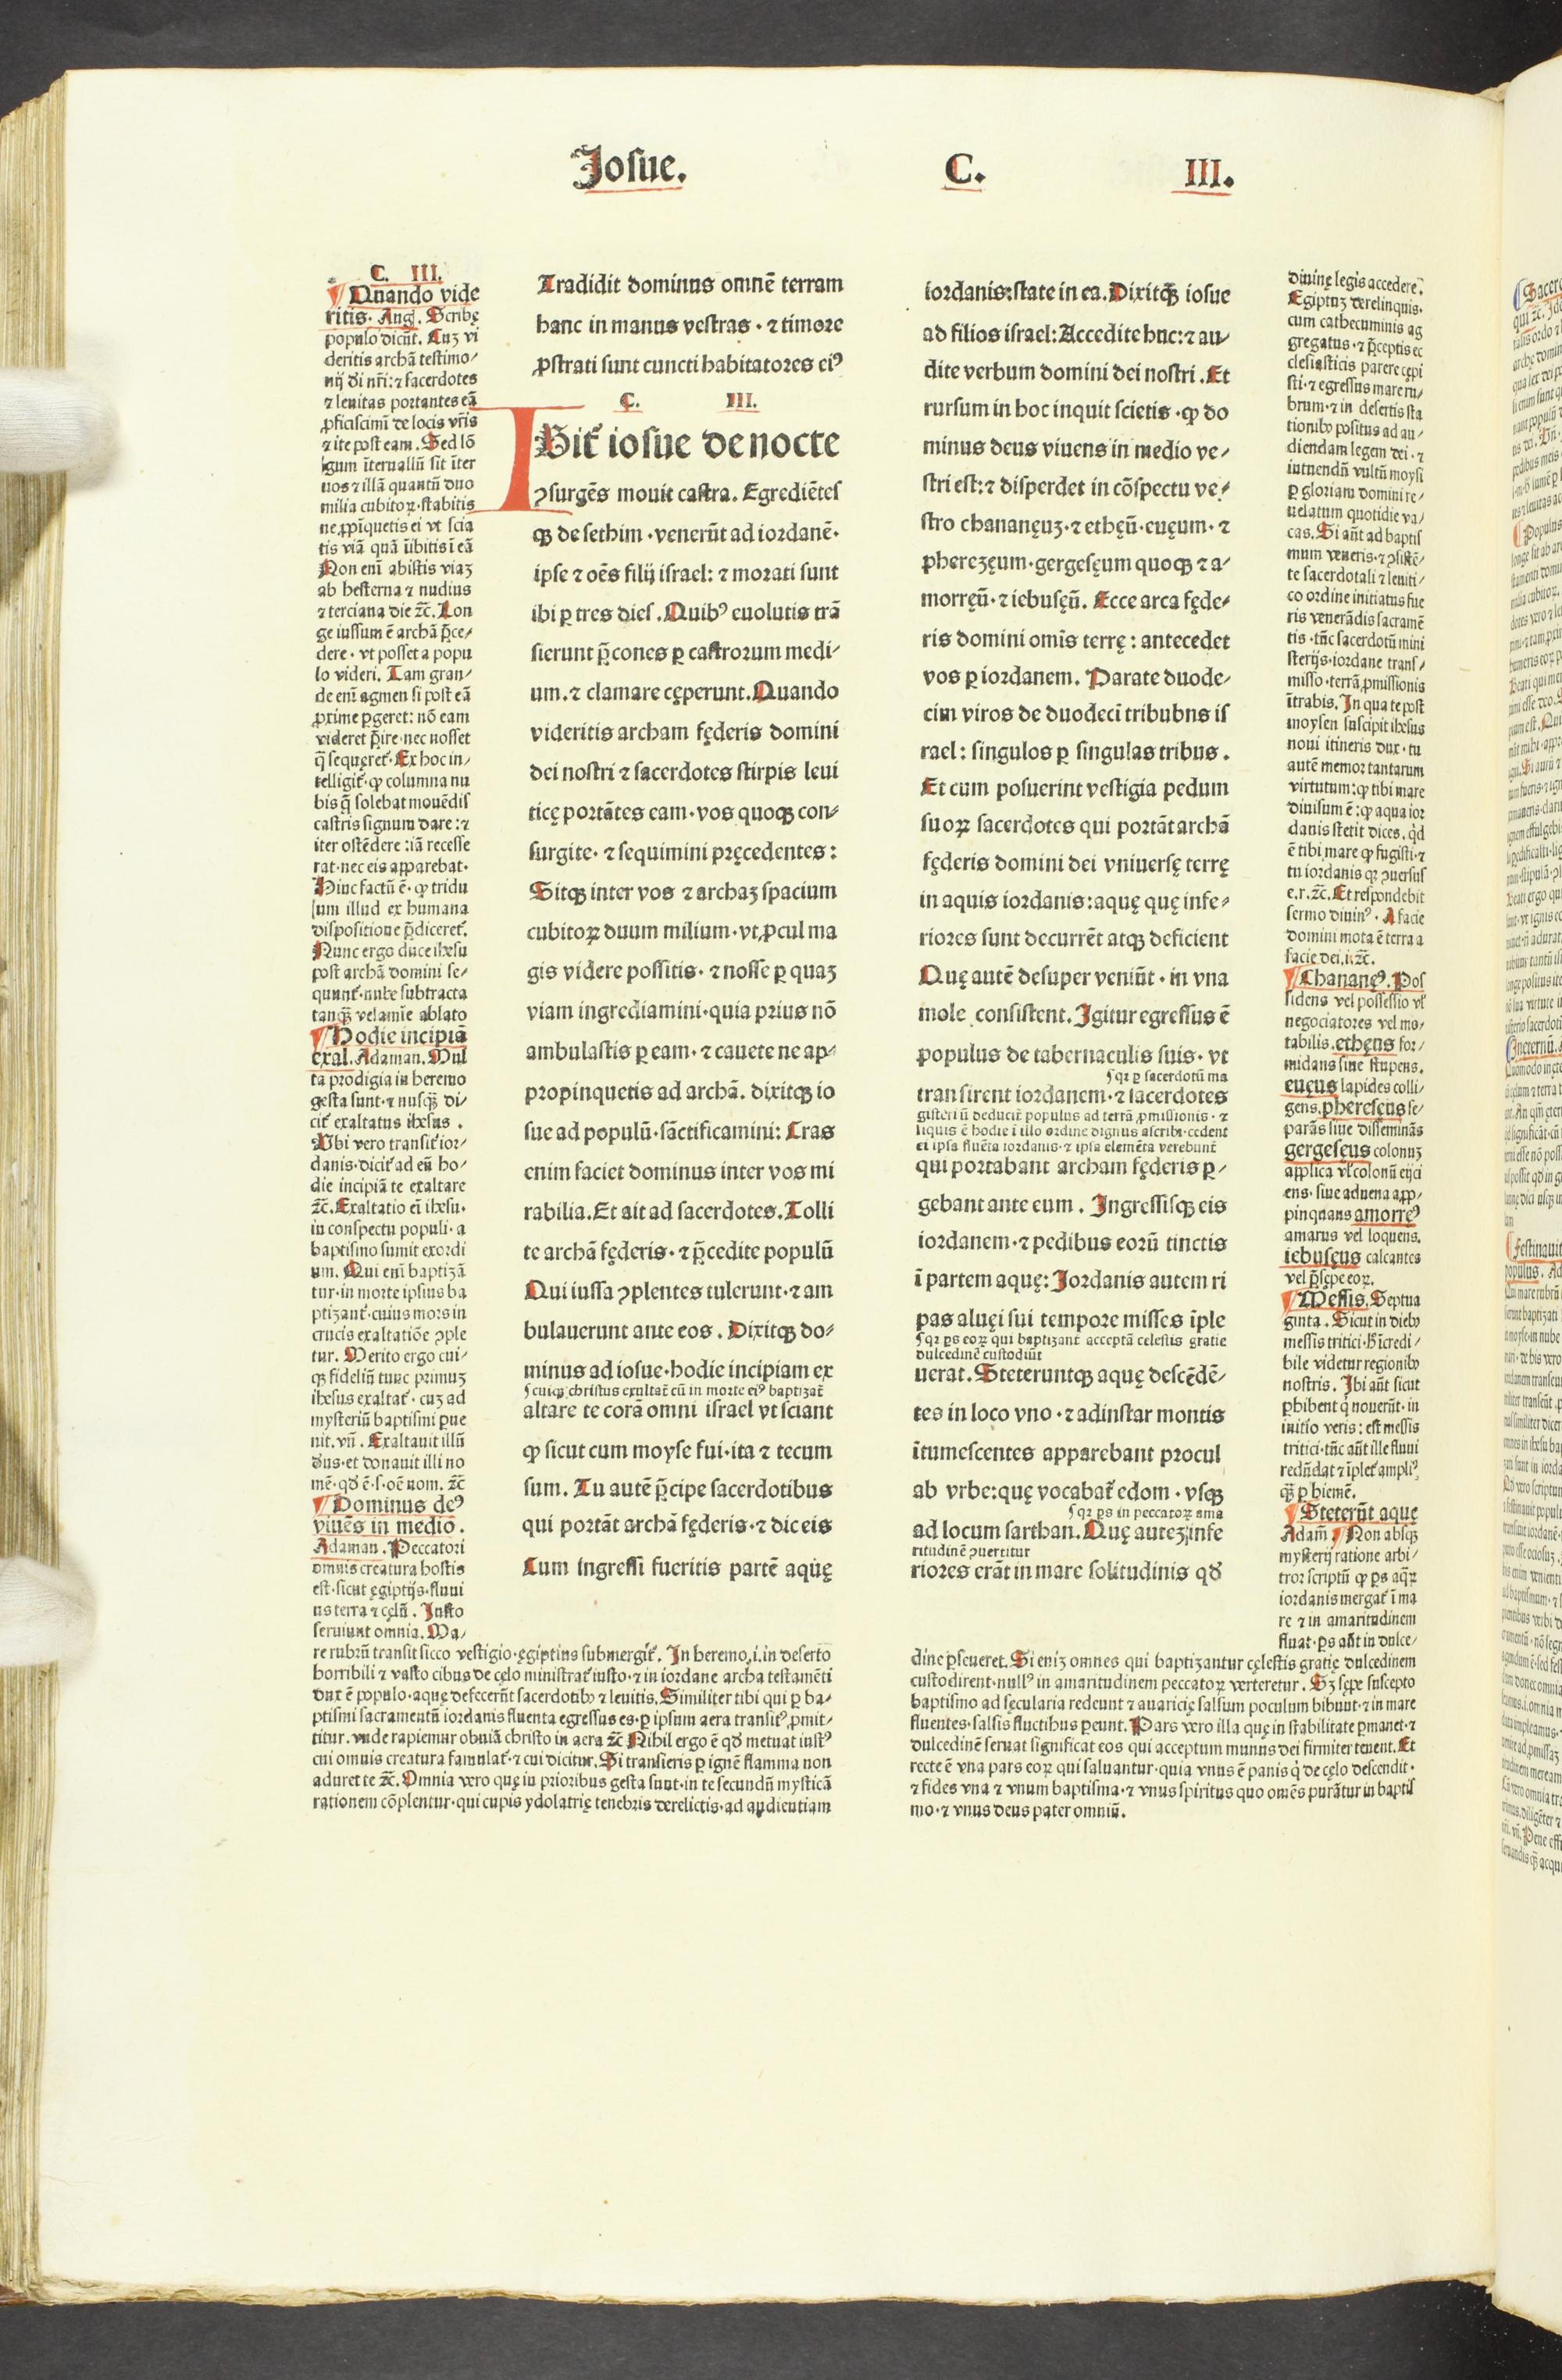 Josue.
C.
III.
C. III.
¶ Quando vide
ritis. Aug. Scribę
populo dicūt. Cuȝ vi
deritis archā testimo/
nij dī nrī: ⁊ sacerdotes
⁊ leuitas portantes eā
ꝓficiscimī de locis vr̄is
⁊ ite post eam. Sed lō
gum īteruallū sit īter
uos ⁊ illā quantū duo
milia cubitoꝝ · stabitis
ne ꝓpīquetis ei vt scia
tis viā quā ībitis ī eā
Non enī abistis viaȝ
ab hesterna ⁊ nudius
⁊ terciana die ⁊c̄. Lon
ge iussum ē archā p̄ce/
dere · vt posset a popu
lo videri. Tam gran/
de enī agmen si post eā
ꝓxime ꝑgeret: nō eam
videret p̄ire · nec nosset
q̄ sequeret᷑. Ex hoc in/
telligit᷑ · ꝙ columna nu
bis q̄ solebat mouēdis
castris signum dare: ⁊
iter ostēdere: iā recesse
rat · nec eis apparebat.
Hinc factū ē · ꝙ tridu
sum illud ex humana
dispositione p̄diceret᷑.
Nunc ergo duce ihesu
post archā domini se/
qunnt᷑ · nube subtracta
tanqȝ̄ velamīe ablato
¶ Hodie incipiā
exal. Adaman. Mul
ta prodigia in heremo
gesta sunt · ⁊ nusqȝ̄ di/
cit᷑ exaltatus ihesus.
Ubi vero transit᷑ ior/
danis · dicit᷑ ad eū ho/
die incipiā te exaltare
⁊c̄. Exaltatio eī ihesu ·
in conspectu populi · a
baptismo sumit exordi
um. Qui enī baptizā
tur · in morte ipsius ba
ptizant᷑ · cuius mors in
crucis exaltatiōe ꝯple
tur. Merito ergo cui/
qȝ fideliū tunc primuȝ
ihesus exaltat᷑ · cuȝ ad
mysteriū baptismi ꝑue
nit. vn̄. Exaltauit illū
deus · et donauit illi no
mē · qd̄ ē · s · oē nom. ⁊c̄
¶ Dominus deꝰ
viuēs in medio.
Adaman. Peccatori
omnis creatura hostis
est · sicut ęgiptijs · fluui
us terra ⁊ cęlū. Justo
seruiunt omnia. Ma/
re rubrū transit sicco vestigio · ęgiptius submergit᷑. In heremo · i · in deserto
horribili ⁊ vasto cibus de cęlo ministrat᷑ iusto · ⁊ in iordane archa testamēti
dux ē populo · aquę defecerūt sacerdotibꝰ ⁊ leuitis. Similiter tibi qui ꝑ ba/
ptismi sacramentū iordanis fluenta egressus es · ꝑ ipsum aera transitꝰ ꝓmit/
titur. vnde rapiemur obuiā christo in aera ⁊c̄ Nihil ergo ē qd̄ metuat iustꝰ
cui omnis creatura famulat᷑ · ⁊ cui dicitur. Si transieris ꝑ ignē flamma non
aduret te ⁊c̄. Omnia vero quę in prioribus gesta sunt · in te secundū mysticā
rationem cōplentur · qui cupis ydolatrię tenebris derelictis · ad audientiam
Tradidit dominus omnē terram
hanc in manus vestras · ⁊ timore
ꝓstrati sunt cuncti habitatores eiꝰ
C. III.
IGit᷑ iosue de nocte
ꝯsurgēs mouit castra. Egrediētes
qȝ de sethim · venerūt ad iordanē ·
ipse ⁊ oēs filij israel: ⁊ morati sunt
ibi ꝑ tres dies. Quibꝰ euolutis trā
sierunt p̄cones ꝑ castrorum medi/
um. ⁊ clamare cęperunt. Quando
videritis archam fęderis domini
dei nostri ⁊ sacerdotes stirpis leui
ticę portātes eam · vos quoqȝ con/
surgite · ⁊ sequimini pręcedentes:
Sitqȝ inter vos ⁊ archaȝ spacium
cubitoꝝ duum milium · vt ꝓcul ma
gis videre possitis · ⁊ nosse ꝑ quaȝ
viam ingrediamini · quia prius nō
ambulastis ꝑ eam · ⁊ cauete ne ap/
propinquetis ad archā. dixitqȝ io
sue ad populū · sāctificamini: Cras
enim faciet dominus inter vos mi
rabilia. Et ait ad sacerdotes. Tolli
te archā fęderis · ⁊ p̄cedite populū
Qui iussa ꝯplentes tulerunt · ⁊ am
bulauerunt ante eos. Dixitqȝ do/
minus ad iosue · hodie incipiam ex
ʃ cuiqȝ christus exultat᷑ cū in morte eiꝰ baptizat᷑
altare te corā omni israel vt sciant
ꝙ sicut cum moyse fui · ita ⁊ tecum
sum. Tu autē p̄cipe sacerdotibus
qui portāt archā fęderis · ⁊ dic eis
Cum ingressi fueritis partē aquę
iordanis: state in ea. Dixitqȝ iosue
ad filios israel: Accedite huc: ⁊ au/
dite verbum domini dei nostri. Et
rursum in hoc inquit scietis · ꝙ do
minus deus viuens in medio ve/
stri est: ⁊ disperdet in cōspectu ve/
stro chananęuȝ · ⁊ ethęū · euęum · ⁊
pherezęum · gergesęum quoqȝ ⁊ a/
morręū · ⁊ iebusęū. Ecce arca fęde/
ris domini omīs terrę: antecedet
vos ꝑ iordanem. Parate duode/
cim viros de duodecī tribubus is
rael: singulos ꝑ singulas tribus.
Et cum posuerint vestigia pedum
suoꝝ sacerdotes qui portāt archā
fęderis domini dei vniuersę terrę
in aquis iordanis: aquę quę infe/
riores sunt decurrēt atqȝ deficient
Quę autē desuper veniūt · in vna
mole consistent. Igitur egressus ē
populus de tabernaculis suis · vt
ʃ qꝛ ꝑ sacerdotū ma
transirent iordanem · ⁊ sacerdotes
gisteriū deducit᷑ populus ad terrā ꝓmissionis · ⁊
liquis ē hodie ī illo ordine dignus ascribi · cedent
ei ipsa fluēta iordanis · ⁊ ipsa elemēta verebunt᷑
qui portabant archam fęderis ꝑ/
gebant ante eum. Ingressisqȝ eis
iordanem · ⁊ pedibus eorū tinctis
ī partem aquę: Jordanis autem ri
pas aluęi sui tempore misses īple
ʃ qꝛ ꝑs eoꝝ qui baptizant᷑ acceptā celestis gratie
dulcedinē custodiūt
uerat. Steteruntqȝ aquę descēdē/
tes in loco vno · ⁊ adinstar montis
ītumescentes apparebant procul
ab vrbe: quę vocabat᷑ edom · vsqȝ
ʃ qꝛ ꝑs in peccatoꝝ ama
ad locum sarthan. Quę auteȝ infe
ritudinē ꝯuertitur
riores erāt in mare solitudinis qd̄
diuinę legis accedere.
Egiptuȝ derelinquis ·
cum cathecuminis ag
gregatus · ⁊ p̄ceptis ec
clesiasticis parere cępi
sti · ⁊ egressus mare ru/
brum · ⁊ in desertis sta
tionibꝰ positus ad au/
diendam legem dei · ⁊
intuendū vultū moysi
ꝑ gloriam domini re/
uelatum quotidie va/
cas. Si aūt ad baptis
mum veneris · ⁊ ꝯsistē/
te sacerdotali ⁊ leuiti/
co ordine initiatus fue
ris venerādis sacramē
tis · tūc sacerdotū mini
sterijs · iordane trans/
misso · terrā ꝓmissionis
ītrabis. In qua te post
moysen suscipit ihesus
noui itineris dux · tu
autē memor tantarum
virtutum: ꝙ tibi mare
diuisum ē: ꝙ aqua ior
danis stetit dices. qd̄
ē tibi mare ꝙ fugisti · ⁊
tu iordanis qꝛ ꝯuersus
e. r. ⁊c̄. Et respondebit
sermo diuinꝰ. A facie
domini mota ē terra a
facie dei. i. ⁊c̄.
¶ Chananęꝰ. Pos
sidens vel possessio vl̄
negociatores vel mo/
tabilis. ethęus for/
midans siue stupens.
euęus lapides colli/
gens. pheresęus se/
parās siue disseminās
gergesęus colonuȝ
applica vl̄ colonū eijci
ens · siue aduena apꝓ/
pinquans amorręꝰ
amarus vel loquens.
iebusęus calcantes
vel p̄sępe eoꝝ.
¶ Messis. Septua
ginta. Sicut in diebꝰ
messis tritici · H̄ īcredi/
bile videtur regionibꝰ
nostris. Ibi aūt sicut
ꝑhibent q̄ nouerūt · in
initio veris: est messis
tritici · tūc aūt ille fluui
redūdat ⁊ īplet᷑ ampliꝰ
qȝ̄ ꝑ hiemē.
¶ Steterūt aquę
Adam̄ ¶ Non absqȝ
mysterij ratione arbi/
tror scriptū ꝙ ꝑs aq̄ꝝ
iordanis mergat᷑ ī ma
re ⁊ in amaritudinem
fluat · ꝑs aūt in dulce/
dine ꝑseueret. Si eniȝ omnes qui baptizantur cęlestis gratię dulcedinem
custodirent · nullꝰ in amaritudinem peccatoꝝ verteretur. Sȝ sępe suscepto
baptismo ad sęcularia redeunt ⁊ auaricię salsum poculum bibunt · ⁊ in mare
fluentes · salsis fluctibus ꝑeunt. Pars vero illa quę in stabilitate ꝑmanet · ⁊
dulcedinē seruat significat eos qui acceptum munus dei firmiter tenent. Et
recte ē vna pars eoꝝ qui saluantur · quia vnus ē panis q̄ de cęlo descendit ·
⁊ fides vna ⁊ vnum baptisma · ⁊ vnus spiritus quo omēs purātur in baptis
mo · ⁊ vnus deus pater omniū.